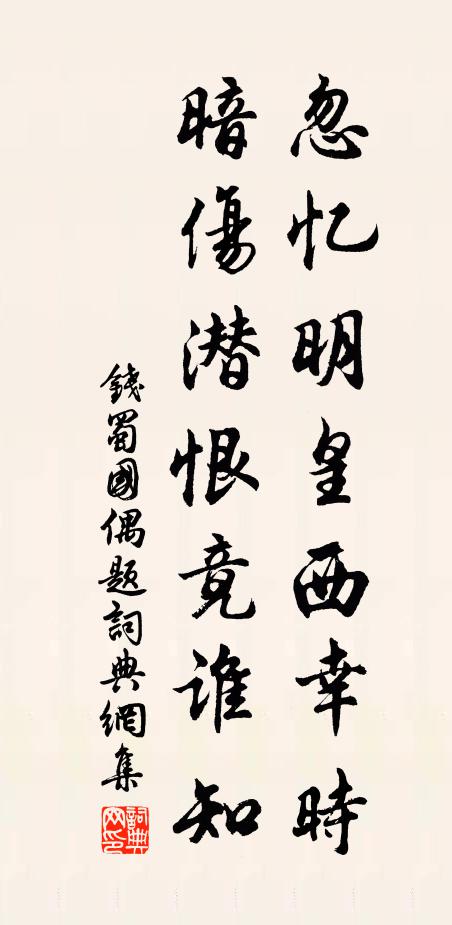 忽忆明皇西幸時
暗傷潜恨竟谁知
錢蜀國偶題詞典網集
詞典網印